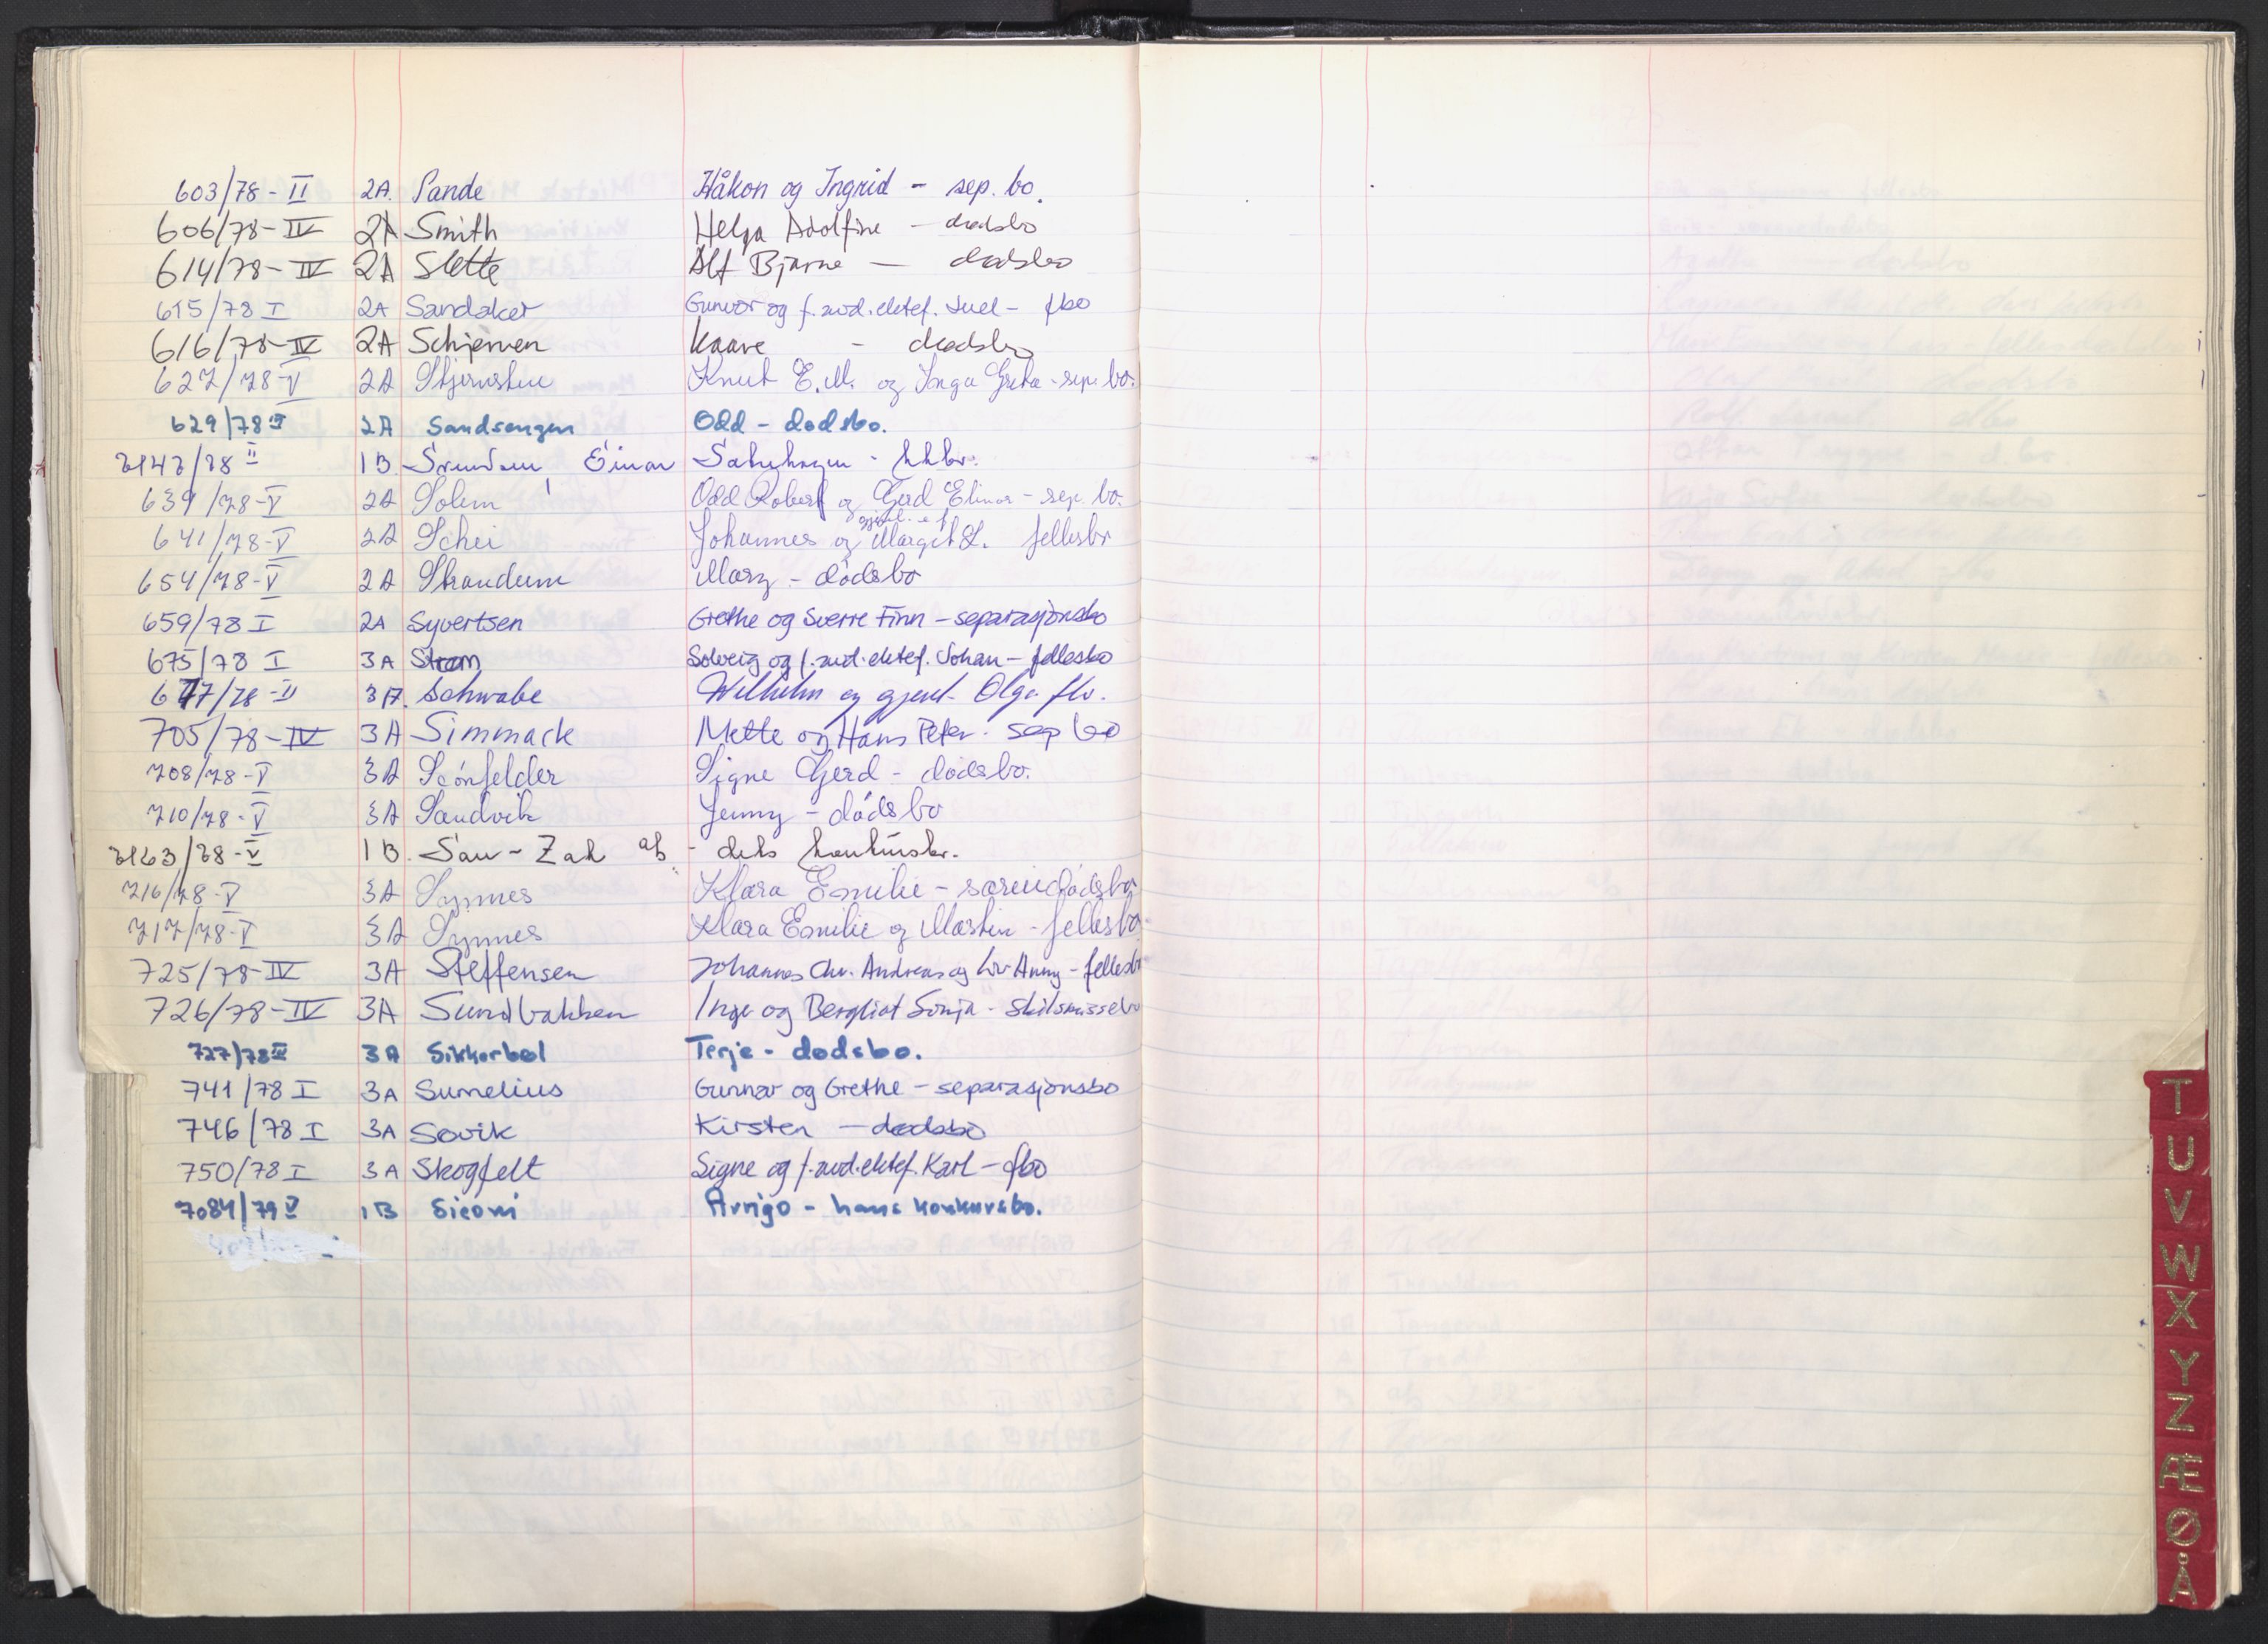 603/78-II 2A. Sande Håkon og Ingrid - sep. bo.
606/78-IV 2A Smith Helga Adolfine - dødsbo
614/78-IV 2A Slette Alf Bjarne - dødsbo
615/78 I 2A Sandaker Gunvor og f. avd. ektef. Juel - fbo
616/78-IV 2A Schjerven Kaare - dødsbo
627/78-V 2A Stjernstein Knut E.M. og Inga Greta - sep. bo.
629/78 III 2A Sandsengen Odd - dødsbo.
639/78-V 2A Solem Odd Robert og Gerd Elinor - sep. bo.
gjenl. e f
641/78-V 2A Schei Johannes og Margit L. fellesbo
654/78-V 2A Strandum Mary - dødsbo
659/78 I 2A Syvertsen Grethe og Sverre Finn - separasjonsbo
675/78 I 3A Strøm Solveig og f. avd. ektef. Johan - fellesbo
677/78-II 3A. Schwabe Wilhelm og gjenl. Olga fbo.
705/78-IV 3A Simmack Mette og Hans Peter - sep bo
708/78-V 3A Scönfelder Signe Gerd - dødsbo.
710/78-V 3A Sandvik Jenny - dødsbo
1B. Sau-Zak a/s - dets konkursbo.
716/78-V 3A Synnes Klara Emilie - særeiedødsbo
717/78-V 3A Synnes Klara Emilie og Martin - fellesbo
725/78-IV 3A Steffensen Johannes Chr. Andreas og Liv Anny - fellesbo
726/78-IV 3A Sundbakken Inge og Bergliot Sonja - skilsmissebo
727/78 III 3A Sikkerbøl Terje - dødsbo.
741/78 I 3A Sumelius Gunnar og Grethe - separasjonsbo
746/78 I 3A Søvik Kirsten - dødsbo
750/78 I 3A Skogfelt Signe og f. avd. ektef. Karl - fbo
7084/79 V 1B Sieoni Arrigo - hans konkursbo.
T
U
V
W
X
Y
Z
Æ
Ø
Å